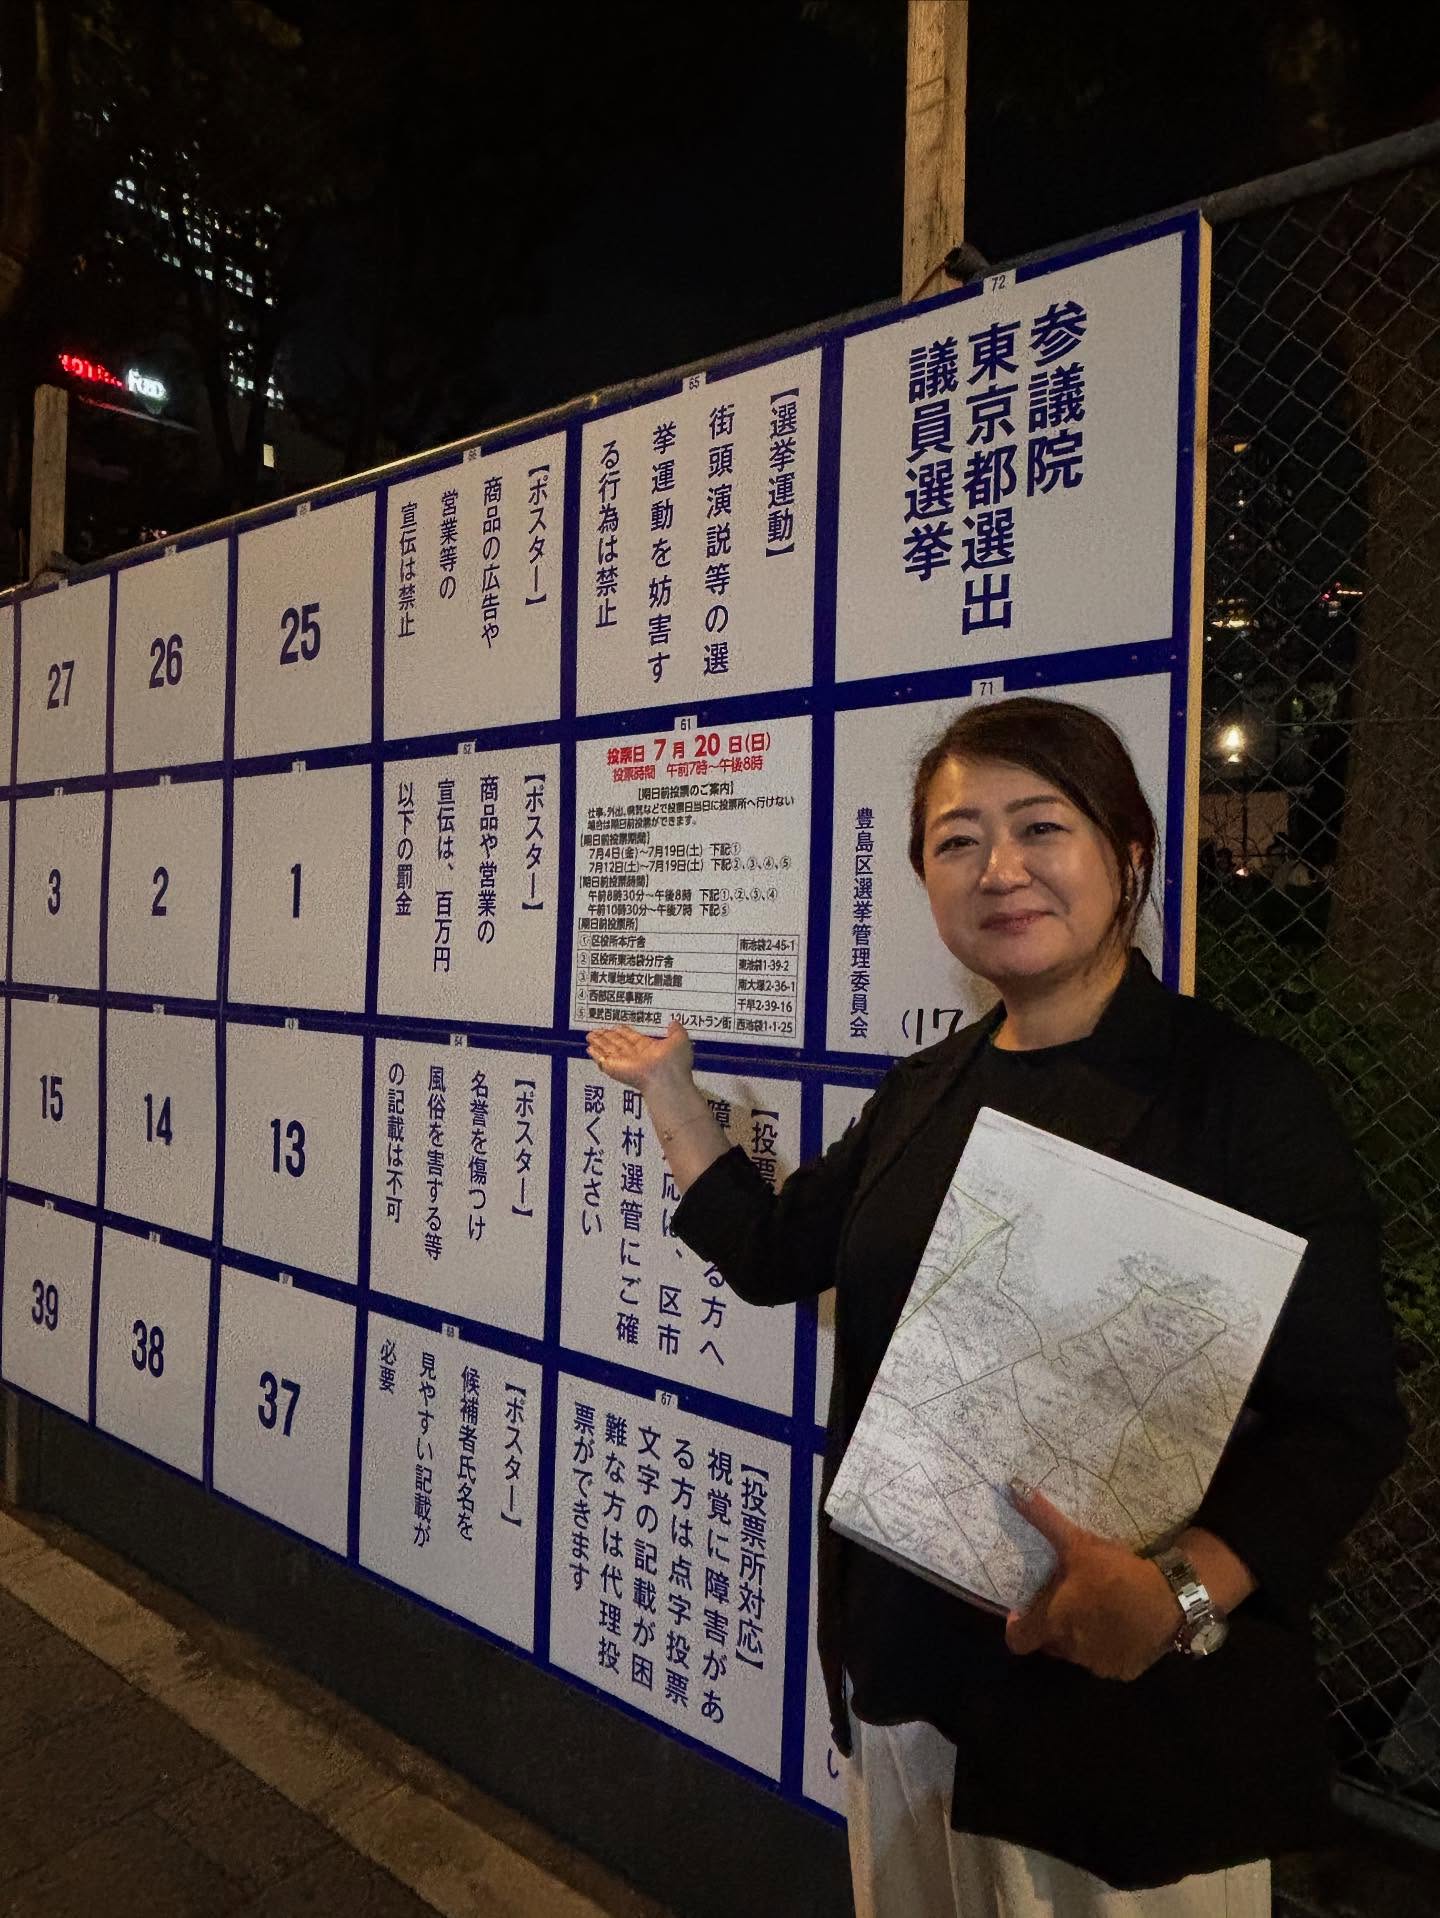 72
参議院
東京都選出
議員選挙
65
【選挙運動】
街頭演説等の選
挙運動を妨害す
る行為は禁止
66
【ポスター】
商品の広告や
営業等の
宣伝は禁止
25
26
27
71
豊島区選挙管理委員会
(17
61
投票日 7月20日(日)
投票時間 午前7時～午後8時
【期日前投票のご案内】
仕事、外出、病気などで投票日当日に投票所へ行けない
場合は期日前投票ができます。
【期日前投票期間】
7月4日(金)～7月19日(土) 下記①
7月12日(土)～7月19日(土) 下記②、③、④、⑤
【期日前投票時間】
午前8時30分～午後8時 下記①、②、③、④
午前10時30分～午後7時 下記⑤
【期日前投票所】
① 区役所本庁舎 南池袋2-45-1
② 区役所東池袋分庁舎 東池袋1-39-2
③ 南大塚地域文化創造館 南大塚2-36-1
④ 西部区民事務所 千早2-39-16
⑤ 東武百貨店池袋本店 12レストラン街 西池袋1-1-25
62
【ポスター】
商品や営業の
宣伝は、百万円
以下の罰金
1
2
3
【投票
障
る方へ
応は、区市
町村選管にご確
認ください
64
【ポスター】
名誉を傷つけ
風俗を害する等
の記載は不可
13
14
15
67
【投票所対応】
視覚に障害があ
る方は点字投票
文字の記載が困
難な方は代理投
票ができます
68
【ポスター】
候補者氏名を
見やすい記載が
必要
37
38
39